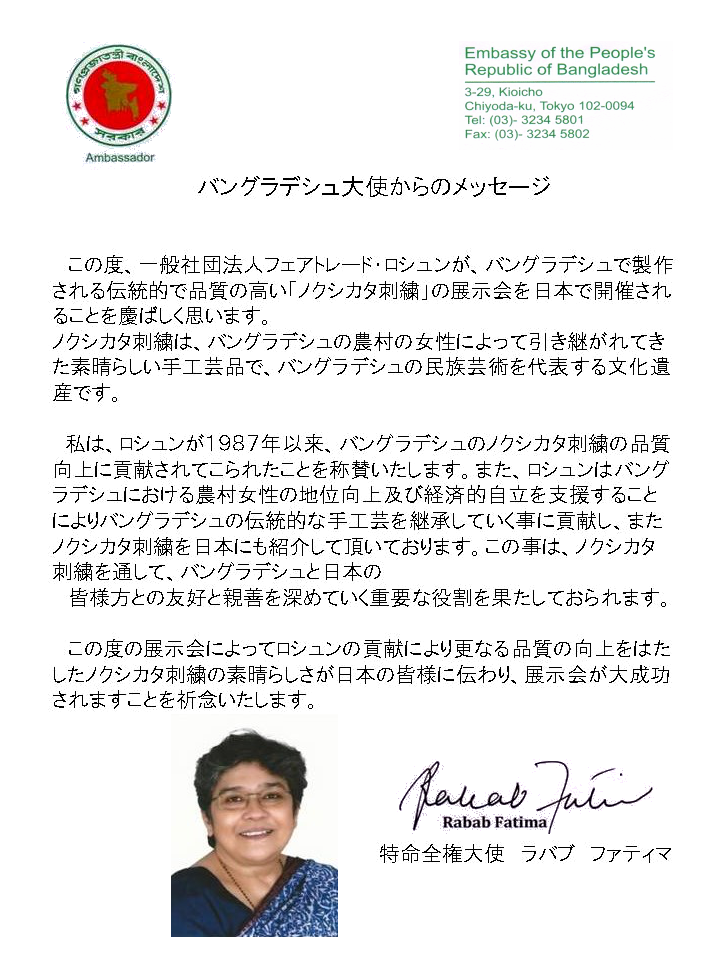 গণপ্রজাতন্ত্রী বাংলাদেশ
সরকার
Ambassador
Embassy of the People's
Republic of Bangladesh
3-29, Kioicho
Chiyoda-ku, Tokyo 102-0094
Tel: (03)- 3234 5801
Fax: (03)- 3234 5802
バングラデシュ大使からのメッセージ
この度、一般社団法人フェアトレード・ロシュンが、バングラデシュで製作
される伝統的で品質の高い「ノクシカタ刺繍」の展示会を日本で開催され
ることを慶ばしく思います。
ノクシカタ刺繍は、バングラデシュの農村の女性によって引き継がれてき
た素晴らしい手工芸品で、バングラデシュの民族芸術を代表する文化遺
産です。
私は、ロシュンが1987年以来、バングラデシュのノクシカタ刺繍の品質
向上に貢献されてこられたことを称賛いたします。また、ロシュンはバング
ラデシュにおける農村女性の地位向上及び経済的自立を支援すること
によりバングラデシュの伝統的な手工芸を継承していく事に貢献し、また
ノクシカタ刺繍を日本にも紹介して頂いております。この事は、ノクシカタ
刺繍を通して、バングラデシュと日本の
皆様方との友好と親善を深めていく重要な役割を果たしておられます。
この度の展示会によってロシュンの貢献により更なる品質の向上をはた
したノクシカタ刺繍の素晴らしさが日本の皆様に伝わり、展示会が大成功
されますことを祈念いたします。
Rabab Fatima
Rabab Fatima
特命全権大使　ラバブ　ファティマ